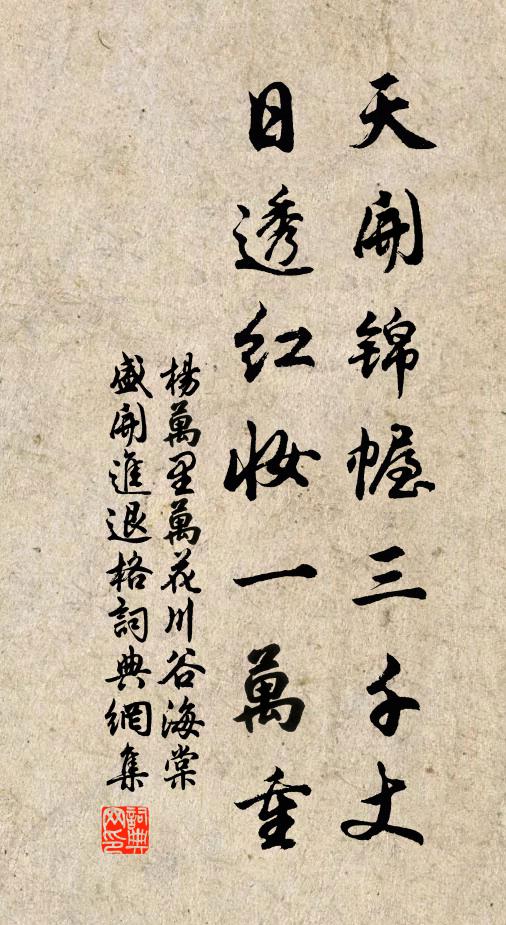 天開錦幄三千丈
日透紅妝一萬重
楊萬里萬花川谷海棠
盛開進退格詞典網集
詞典
网印